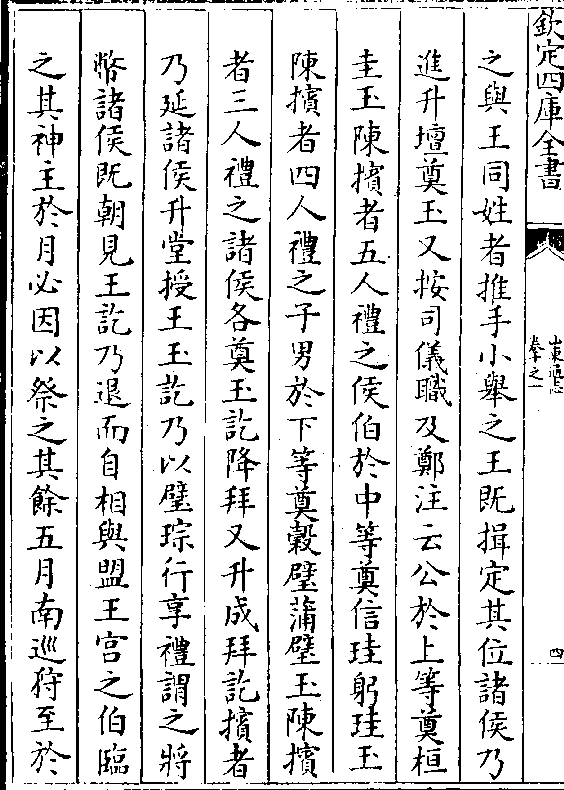 欽定四庫全書
山東通志
卷之一
四
之與王同姓者推手小舉之王既揖定其位諸侯乃
進升壇奠玉又按司儀職及鄭注云公於上等奠桓
圭玉陳擯者五人禮之侯伯於中等奠信珪躬珪玉
陳擯者四人禮之子男於下等奠穀璧蒲璧玉陳擯
者三人禮之諸侯各奠玉訖降拜又升成拜訖擯者
乃延諸侯升堂授王玉訖乃以璧琮行享禮謂之將
幣諸侯既朝見王訖乃退而自相與盟王宫之伯臨
之其神主於月必因以祭之其餘五月南巡狩至於